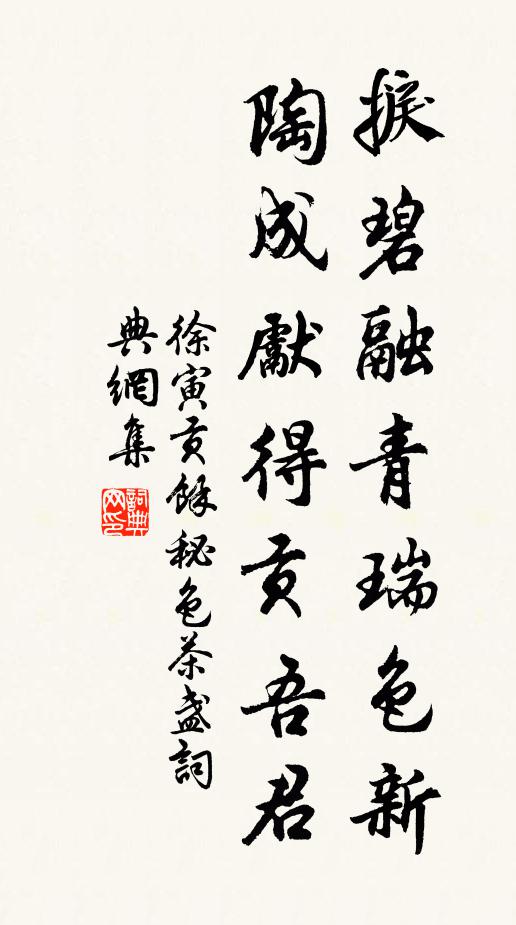 捩碧融青瑞色新
陶成獻得貢吾君
徐寅貢餘秘色茶盞詞
典網集
詞典网印